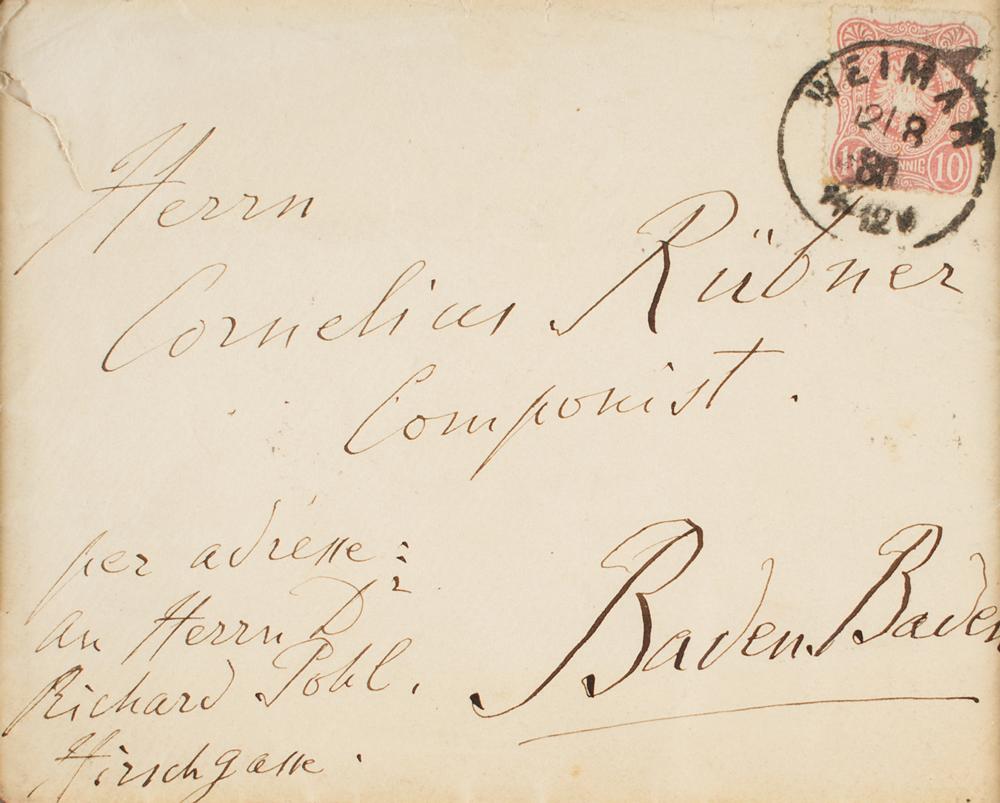 WEIMAR
12/8
80
10 PFENNIG 10
Herrn
Cornelius Rübner
Componist.
per adresse:
an Herrn Dr
Richard Pohl.
Hirschgasse.
Baden Baden